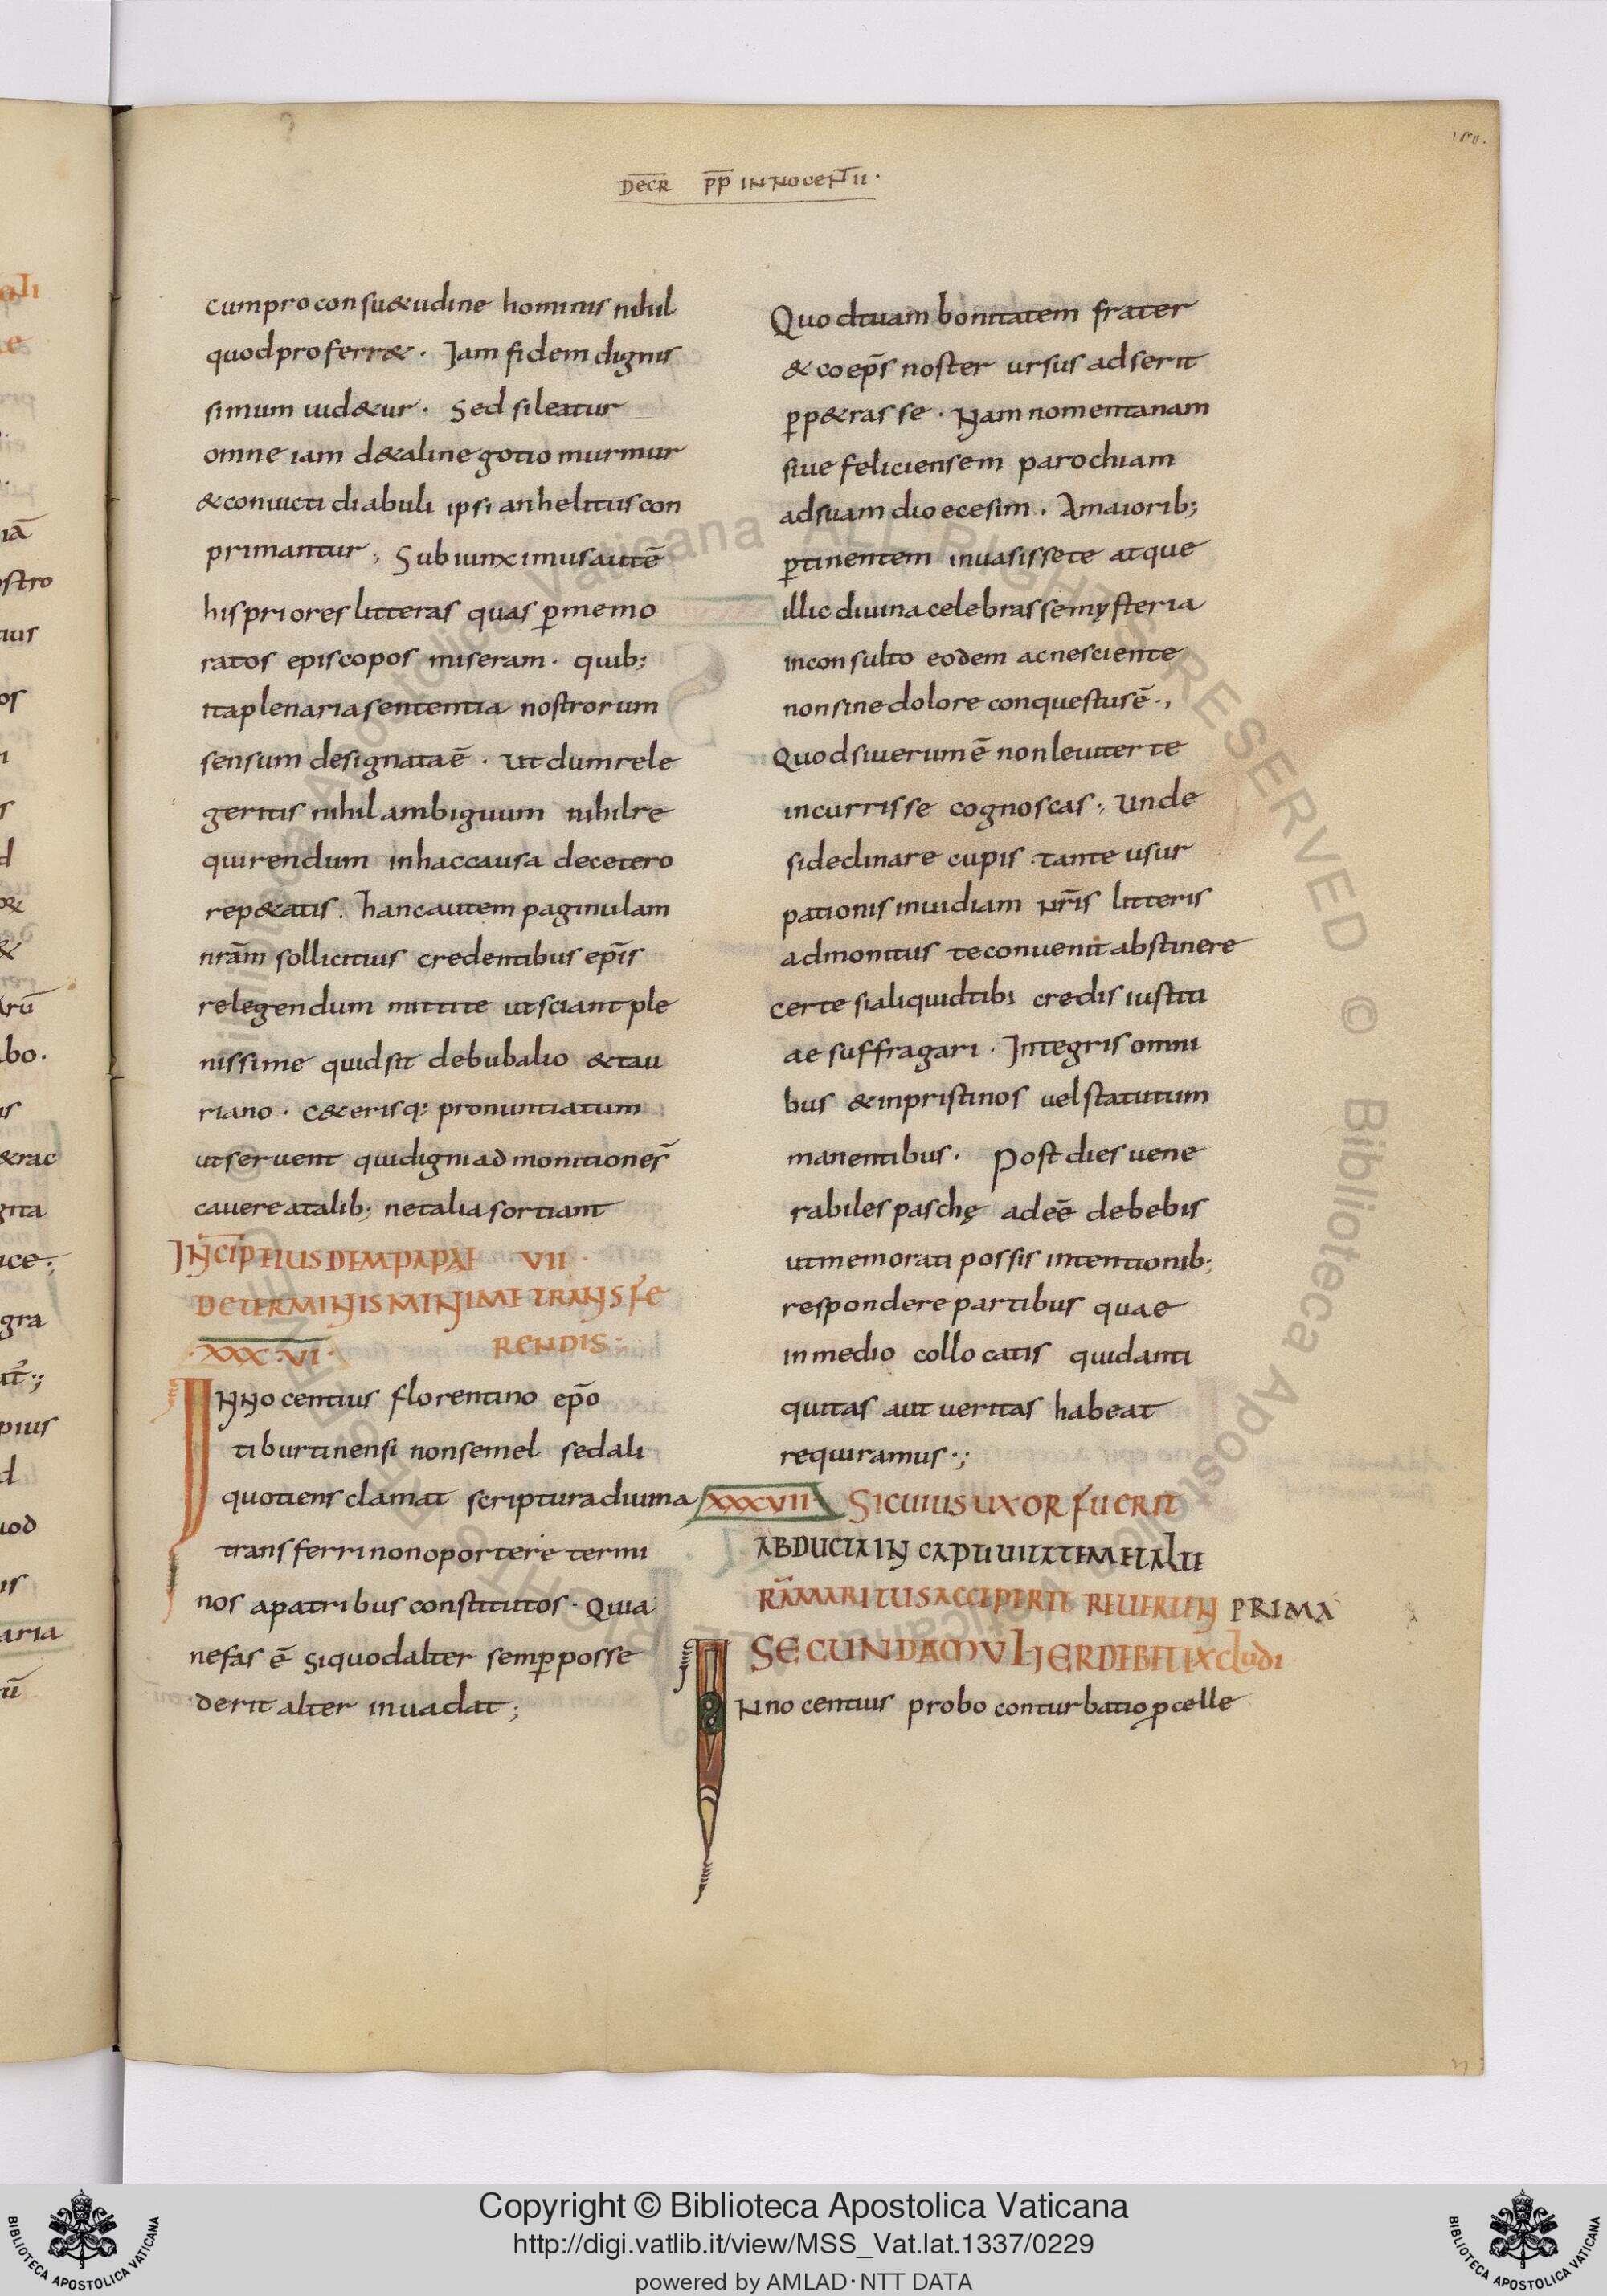 DECR̄ PP̄ INNOCENTII·
cum pro consu&udine hominis nihil
quod proferr&. Iam fidem dignis
simum uid&ur. Sed sileatur
omne iam d& aline gotio murmur
& conuicti diabuli ipsi anhelitus con
primantur; Subiunximus autē
his priores litteras quas ꝑ memo
ratos episcopos miseram. quib;
ita plenaria sententia nostrorum
sensum designata ē. ut dum rele
geritis nihil ambiguum nihil re
quirendum in hac causa de cetero
rep&atis. hanc autem paginulam
nr̄am sollicitius credentibus ep̄is
relegendum mittite ut sciant ple
nissime quid sit de bubalio & tau
riano. c&erisq: pronuntiatum
ut seruent qui digni admonitioner̄
cauere a talib; ne talia sortiant
INCIP̄ EIUSDEM PAPAE VII·
DE TERMINIS MINIME TRANSFE
RENDIS·
·XXX·VI·
INNocentius florentino ep̄o
tiburtinensi non semel sed ali
quotiens clamat scriptura diuina
transferri non oportere termi
nos a patribus constitutos. Quia
nefas ē si quod alter semꝑ posse
derit alter inuadat;
Quod tuam bonitatem frater
& coep̄s noster ursus adserit
ꝑp&rasse. Nam nomentanam
siue feliciensem parochiam
ad suam dioecesim. A maiorib;
ꝑtinentem inuasisse te atque
illic diuina celebrasse mysteria
inconsulto eodem ac nesciente
non sine dolore conquestus ē.,
Quod si uerum ē non leuiter te
incurrisse cognoscas; Unde
si declinare cupis tante usur
pationis inuidiam nr̄is litteris
admonitus te conuenit abstinere
certe si aliquid tibi credis iustiti
ae suffragari. Integris omni
bus & in pristinos uel statutum
manentibus. Post dies uene
rabiles paschę adeē debebis
ut memorati possis intentionib;
respondere partibus quae
in medio collocatis quid anti
quitas aut ueritas habeat
requiramus·;
XXXVII· SI CUIUS UXOR FUERIT
ABDUCTA IN CAPTIUITATEM ET ALTE
RĀ MARITUS ACCIPERIT REUERTEN PRIMA
SECUNDA MULIER DEBET EXCludi
INnocentius probo conturbatio ꝓcelle
Copyright © Biblioteca Apostolica Vaticana
http://digi.vatlib.it/view/MSS_Vat.lat.1337/0229
powered by AMLAD·NTT DATA
BIBLIOTECA APOSTOLICA VATICANA
BIBLIOTECA APOSTOLICA VATICANA